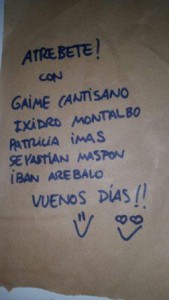 ATREBETE!
CON
GAIME CANTISANO
IXIDRO MONTALBO
PATRICIA IMAS
SEYASTIÁN MASPON
IBAN AREBALO
VUENOS DÍAS!!